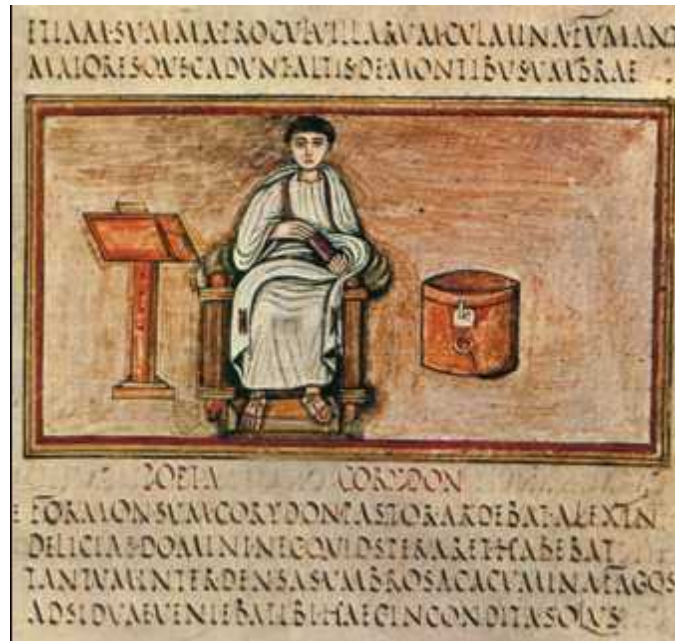 ETIAM·SVMMA·PROCVL·VILLARVM·CVLMINA·FVMANT
MAIORESQVE·CADVNT·ALTIS·DE·MONTIBVS·VMBRAE
POETA CORYDON
FORMONSVM·CORYDON·PASTOR·ARDEBAT·ALEXIN
DELICIAS·DOMINI·NEC·QVID·SPERARET·HABEBAT
TANTVM·INTER·DENSAS·VMBROSA·CACVMINA·FAGOS
ADSIDVAE·VENIEBAT·IBI·HAEC·INCONDITA·SOLVS